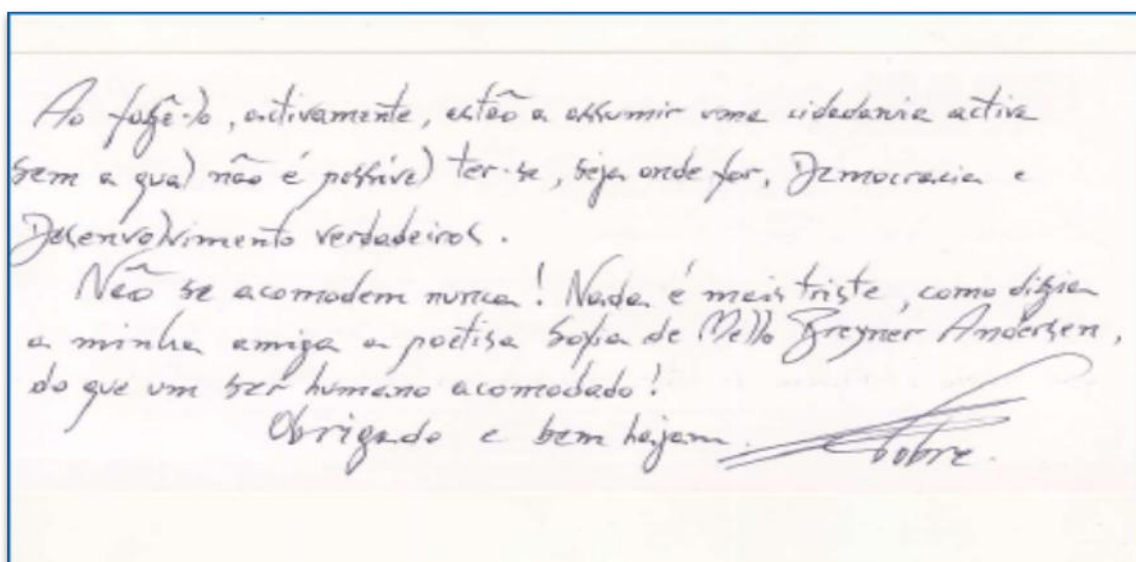 Ao fazê-lo, activamente, estão a assumir uma cidadania activa
sem a qual não é possível ter-se, seja onde for, Democracia e
Desenvolvimento verdadeiros.
Não se acomodem nunca! Nada é mais triste, como dizia
a minha amiga a poetisa Sofia de Mello Breyner Andersen,
do que um ser humano acomodado!
Obrigado e bem hajam. Nobre.